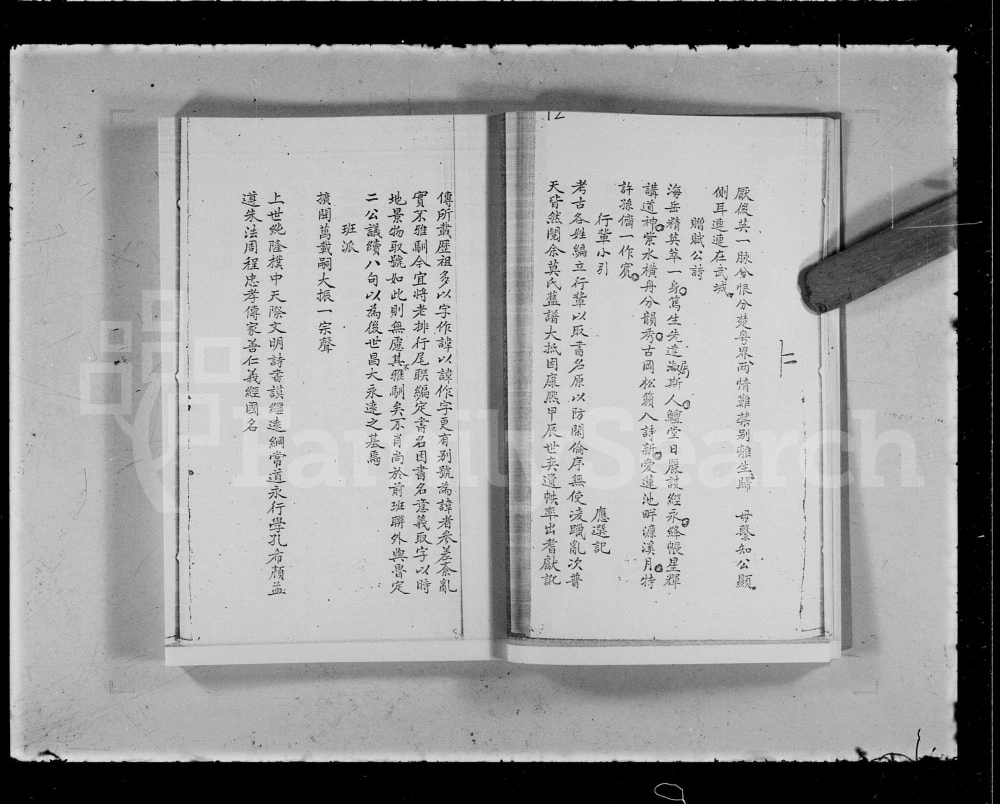 厥後英一脉分恨分楚粤界两情難禁别離生歸 毋繫知公顯
側耳連連在武城
贈賦公詩
海岳精英萃一身篤生先達瀉斯人鱣堂日麗談經永絳帳星輝
講道神紫水橫舟分韻秀古岡松翁入詩新愛蓮池畔濂溪月特
許孫儕一作賓
行軰小引 應選記
考古各姓編立行軰以取書名原以防閑倫序無使凌躐亂次普
天皆然閱余莫氏舊譜大抵因康熙甲辰世喪遺帙率出耆獻訛
傳所載歷祖多以字作諱以諱作字更有别號為諱者參差紊亂
實不雅馴今宜將老排行尾聯編定書名因書名意義取字以時
地景物取號如此則無應其雅馴矣不肖尚於前班聯外與魯定
二公議續八句以為後世昌大永遠之基焉
班派
擴開萬載嗣大振一宗聲
上世純隆樸中天際文明詩書謨繼遠綱常道永行學孔希顔益
遵朱法周程忠孝傳家善仁義經國名
FamilySearch